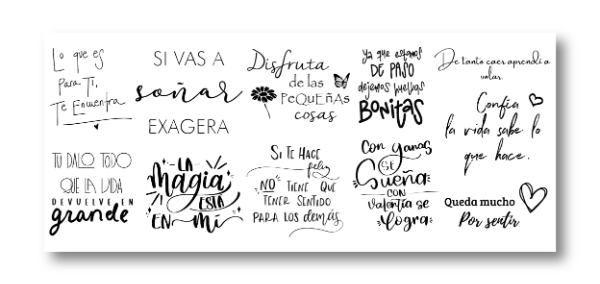 Lo que es
Para Ti,
Te Encuentra
SI VAS A
soñar
EXAGERA
Disfruta
de las
PEQUEÑAS
cosas
Ya que estamos
DE PASO
dejemos huellas
BONITAS
De tanto caer aprendí a
volar.
Confía
la vida sabe lo
que hace.
TU DALO TODO
QUE LA VIDA
DEVUELVE EN
grande
LA
Magia
ESTÁ
EN Mí
SI TE HACE
feliz
NO TIENE QUE
TENER SENTIDO
PARA LOS demás
Con ganas
SE
Sueña
CON
valentía se
logra
Queda mucho
Por sentir